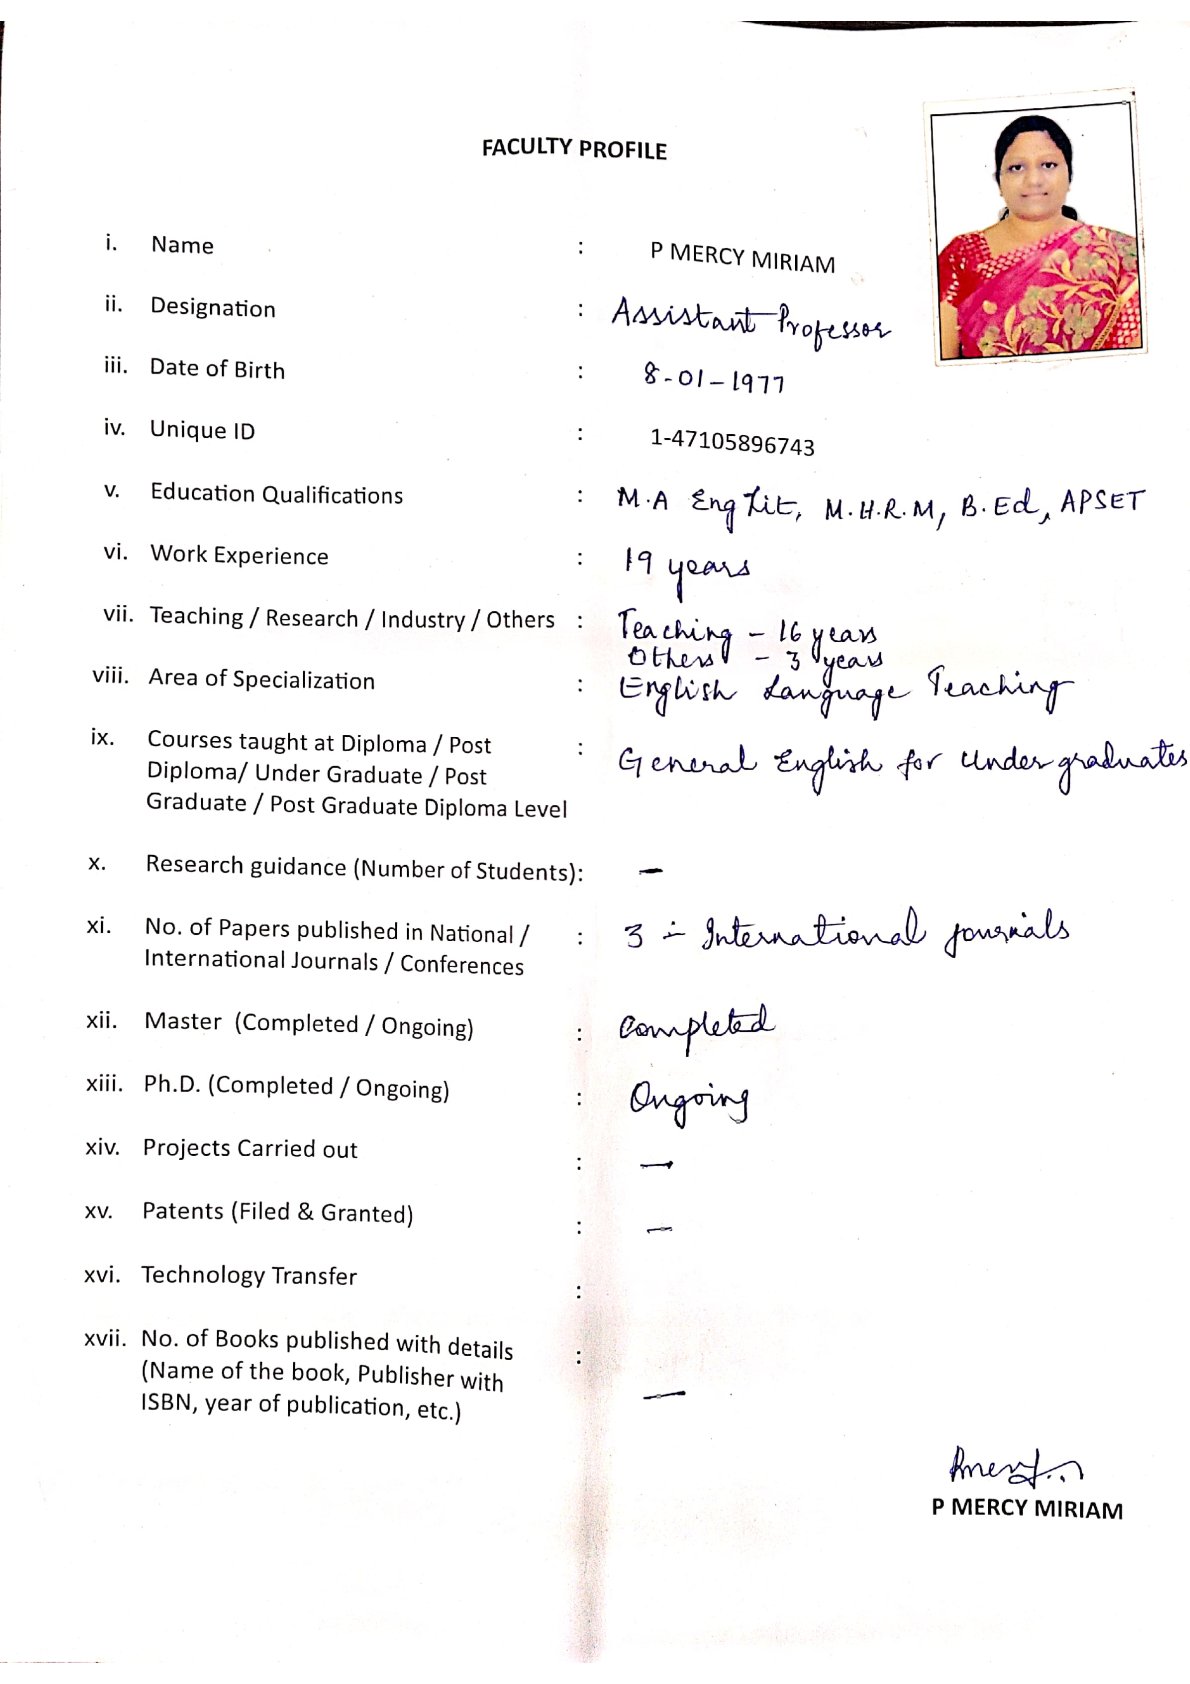 FACULTY PROFILE
i. Name : P MERCY MIRIAM
ii. Designation : Assistant Professor
iii. Date of Birth : 8-01-1977
iv. Unique ID : 1-47105896743
v. Education Qualifications : M.A Eng Lit, M.H.R.M, B.Ed, APSET
vi. Work Experience : 19 years
vii. Teaching / Research / Industry / Others : Teaching - 16 years
Others - 3 years
viii. Area of Specialization : English Language Teaching
ix. Courses taught at Diploma / Post : General English for Undergraduates
Diploma/ Under Graduate / Post
Graduate / Post Graduate Diploma Level
x. Research guidance (Number of Students): -
xi. No. of Papers published in National / : 3 - International journals
International Journals / Conferences
xii. Master (Completed / Ongoing) : Completed
xiii. Ph.D. (Completed / Ongoing) : Ongoing
xiv. Projects Carried out : -
xv. Patents (Filed & Granted) : -
xvi. Technology Transfer :
xvii. No. of Books published with details :
(Name of the book, Publisher with
ISBN, year of publication, etc.) -
P MERCY MIRIAM